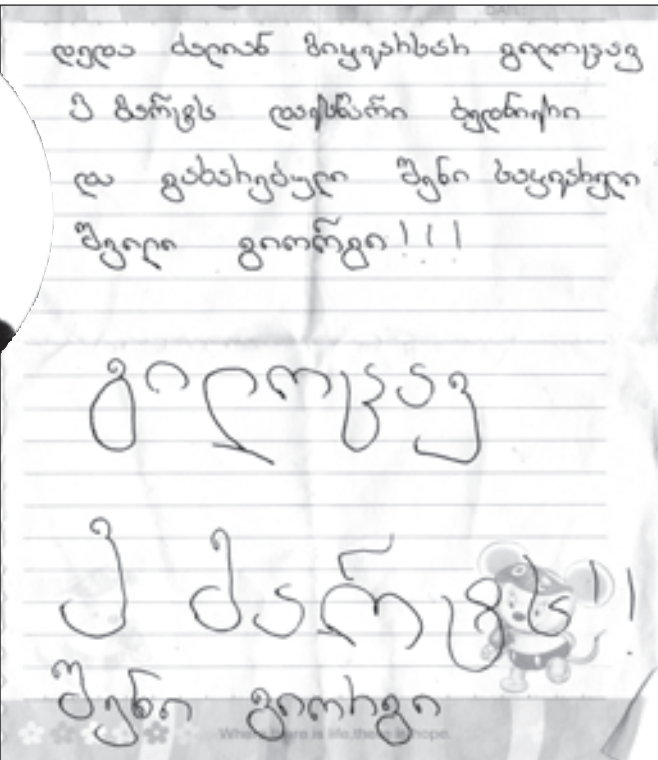 DATE:
დედა ძალიან მიყვარხარ გილოცავ
3 მარტს დაესწარი ბედნიერი
და გახარებული შენი საყვარელი
შვილი გიორგი!!!
გილოცავ
3 მარტს!!
შენი გიორგი
Where there is life,there is hope.